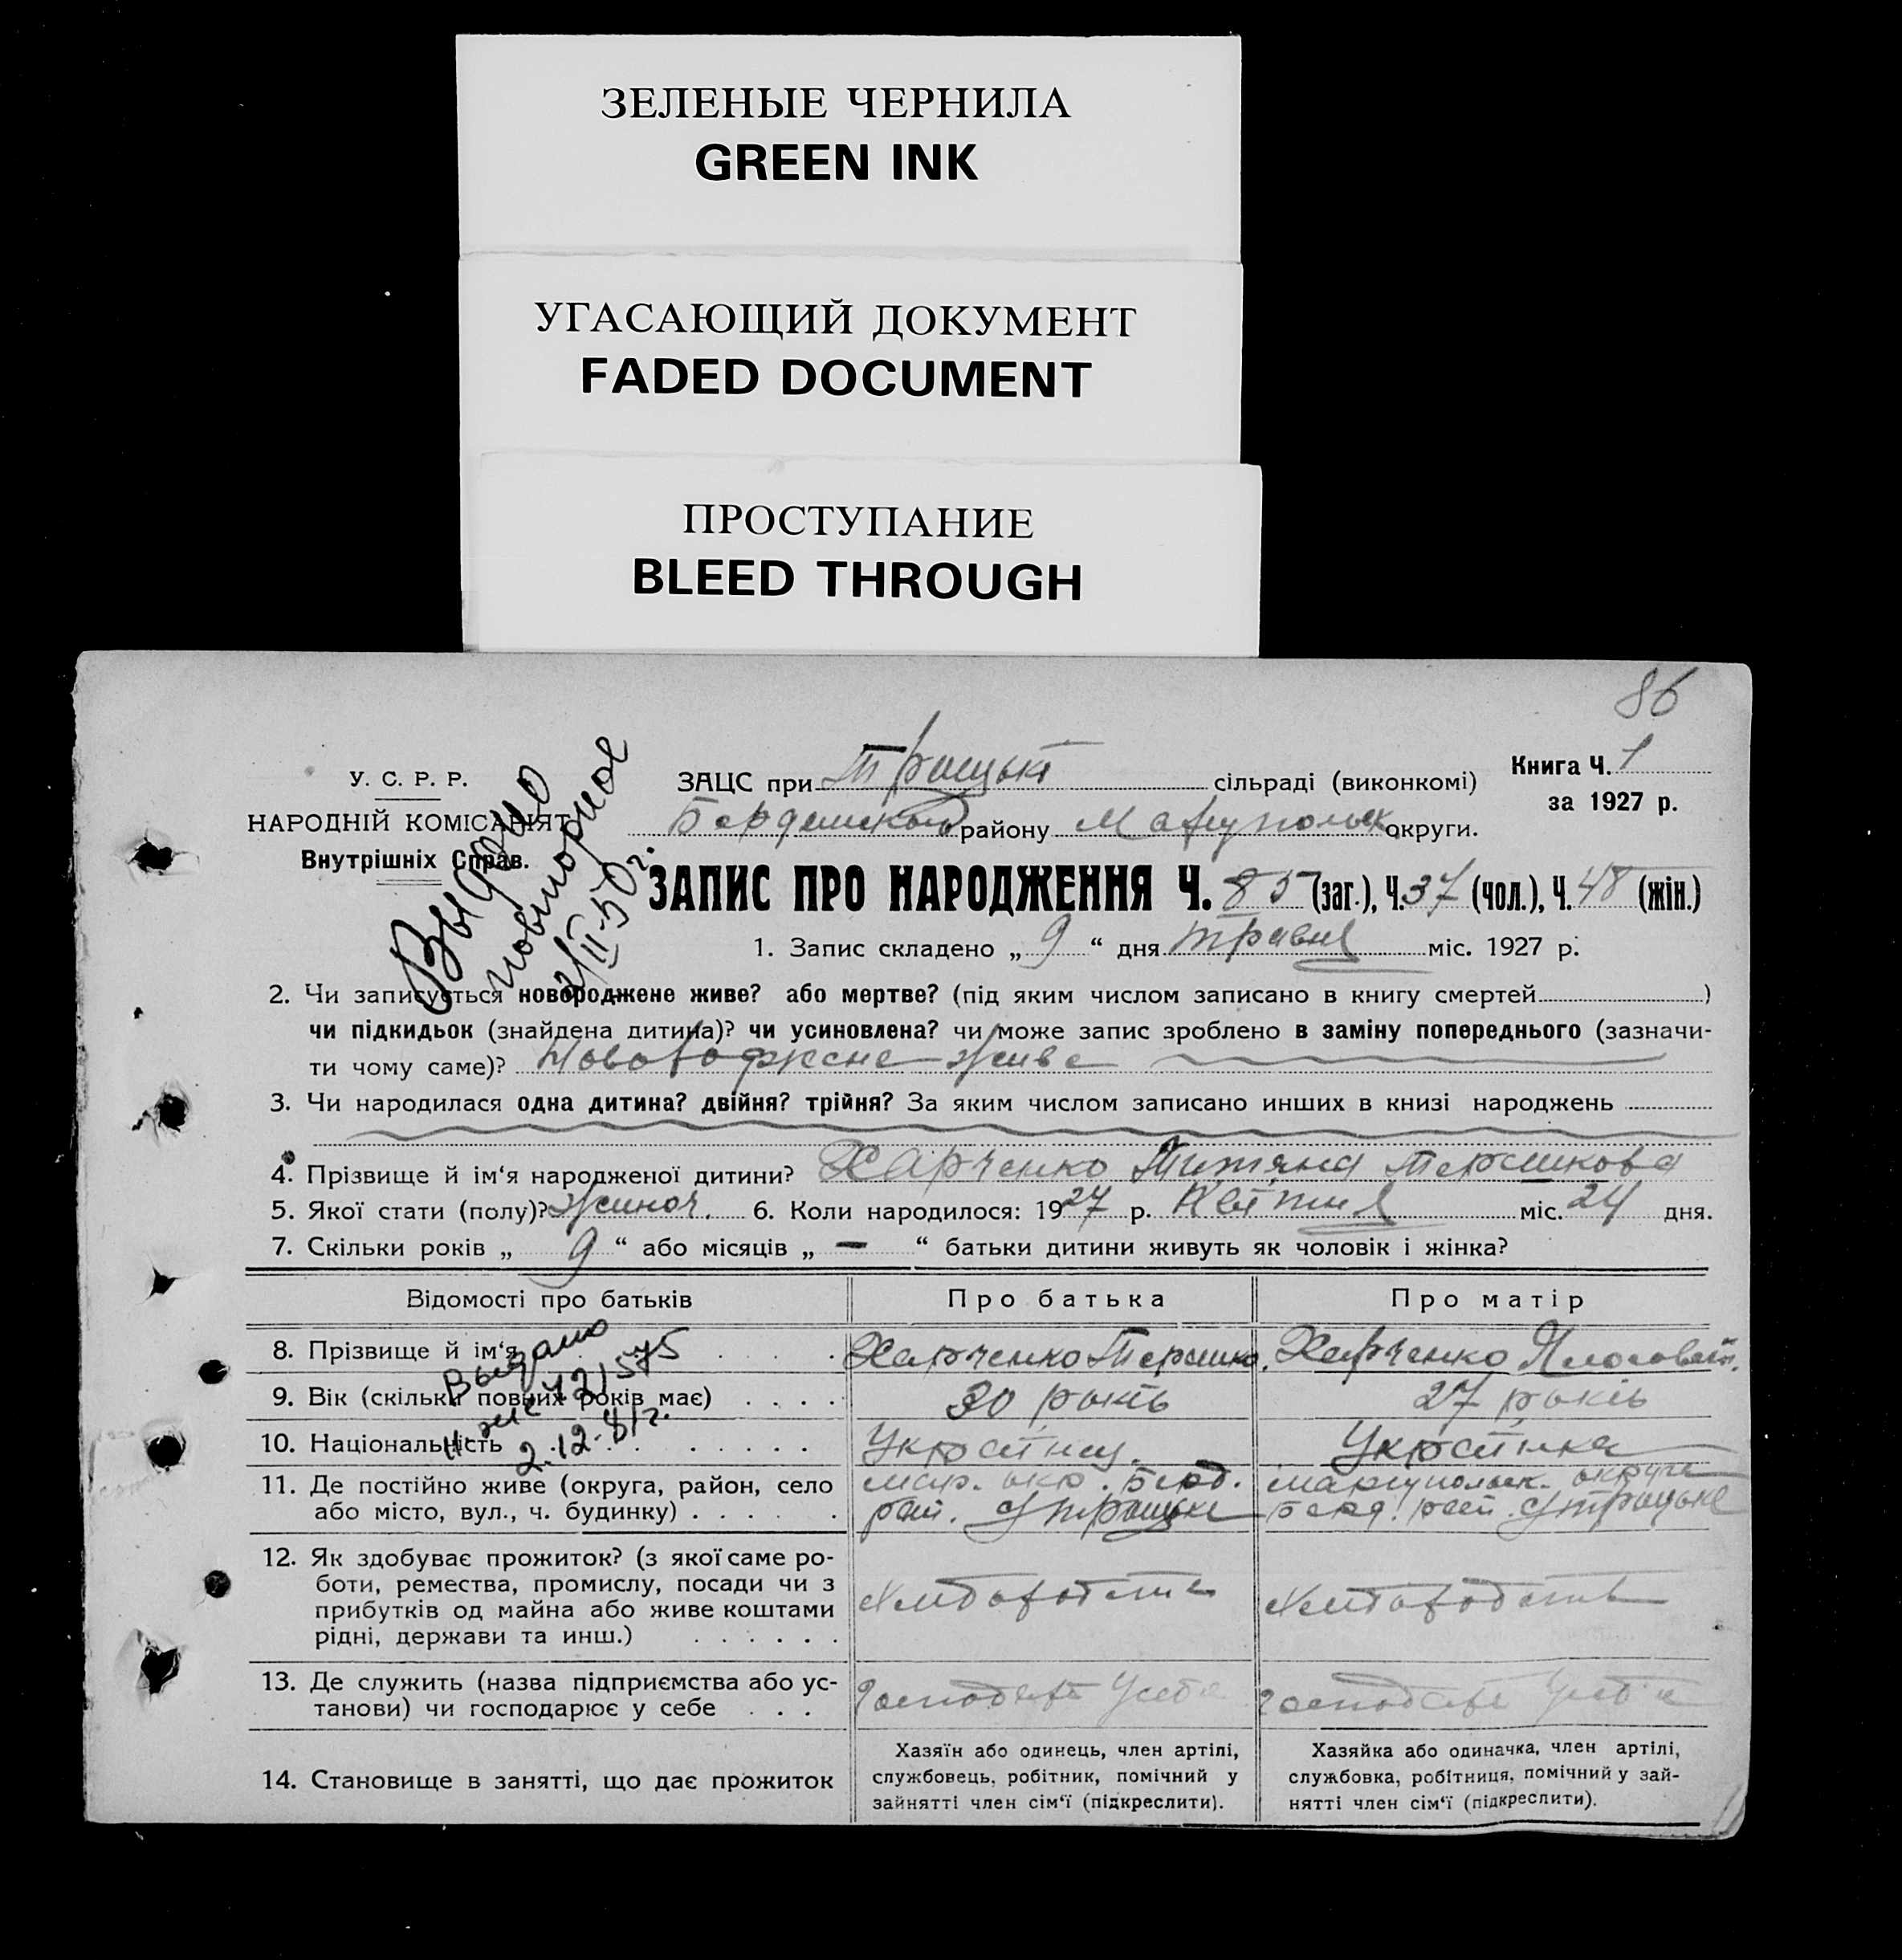 ЗЕЛЕНЫЕ ЧЕРНИЛА
GREEN INK
УГАСАЮЩИЙ ДОКУМЕНТ
FADED DOCUMENT
ПРОСТУПАНИЕ
BLEED THROUGH
86
У. С. Р. Р.
НАРОДНІЙ КОМІСАРІЯТ
Внутрішніх Справ.
Выдано
повторное
2/II-50 г.
Книга Ч. 1
за 1927 р.
ЗАЦС при Троцькі сільраді (виконкомі)
району Маріупольск округи.
ЗАПИС ПРО НАРОДЖЕННЯ Ч. 85 (заг.), Ч. 37 (чол.), Ч. 48 (жін.)
1. Запис складено „ 9 “ дня травня міс. 1927 р.
2. Чи записується новороджене живе? або мертве? (під яким числом записано в книгу смертей )
чи підкидьок (знайдена дитина)? чи усиновлена? чи може запис зроблено в заміну попереднього (зазначи-
ти чому саме)? Новорожене живе
3. Чи народилася одна дитина? двійня? трійня? За яким числом записано инших в книзі народжень
4. Прізвище й ім‘я народженої дитини? Харченко
5. Якої стати (полу)? жиноч. 6. Коли народилося: 1927 р. Квітня міс. 24 дня.
7. Скільки років „ 9 “ або місяців „ — “ батьки дитини живуть як чоловік і жінка?
Відомості про батьків Про батька Про матір
8. Прізвище й ім‘я Харченко Харченко
Выдано
9. Вік (скільки повних років має) 30 років 27 років
2.12.81г.
10. Національність Українец. Українка
11. Де постійно живе (округа, район, село
або місто, вул., ч. будинку)
мар. окр. Берд. маріупольск. округи
рай. с Троцьке Берд. рай. с Троцьке
12. Як здобуває прожиток? (з якої саме ро-
боти, ремества, промислу, посади чи з
прибутків од майна або живе коштами
рідні, держави та инш.)
13. Де служить (назва підприємства або ус-
танови) чи господарює у себе
14. Становище в занятті, що дає прожиток
Хазяїн або одинець, член артілі,
службовець, робітник, помічний у
зайнятті член сім‘ї (підкреслити).
Хазяйка або одиначка, член артілі,
службовка, робітниця, помічний у зай-
нятті член сім‘ї (підкреслити).